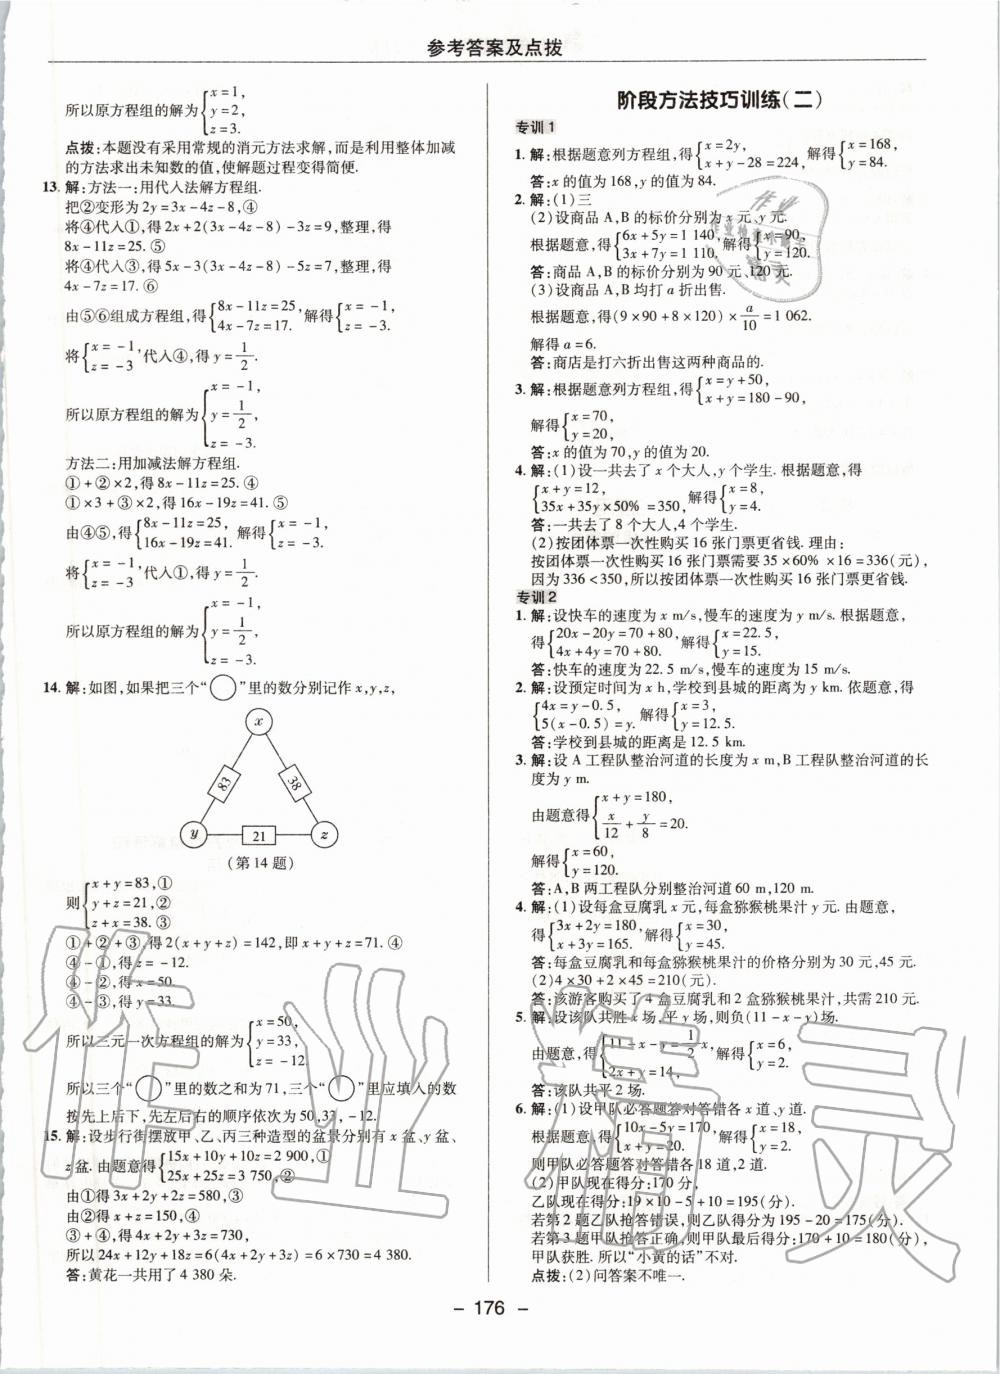 参考答案及点拨
所以原方程组的解为{x=1, y=2, z=3.
点拨:本题没有采用常规的消元方法求解,而是利用整体加减
的方法求出未知数的值,使解题过程变得简便.
13. 解:方法一:用代入法解方程组.
把②变形为2y=3x-4z-8,④
将④代入①,得2x+2(3x-4z-8)-3z=9,整理,得
8x-11z=25. ⑤
将④代入③,得5x-3(3x-4z-8)-5z=7,整理,得
4x-7z=17. ⑥
由⑤⑥组成方程组,得{8x-11z=25, 4x-7z=17. 解得{x=-1, z=-3.
将{x=-1, z=-3代入④,得y=1/2.
所以原方程组的解为{x=-1, y=1/2, z=-3.
方法二:用加减法解方程组.
①+②×2,得8x-11z=25. ④
①×3+③×2,得16x-19z=41. ⑤
由④⑤,得{8x-11z=25, 16x-19z=41. 解得{x=-1, z=-3.
将{x=-1, z=-3代入①,得y=1/2.
所以原方程组的解为{x=-1, y=1/2, z=-3.
14. 解:如图,如果把三个“○”里的数分别记作x,y,z,
x
83 38
y 21 z
(第14题)
则{x+y=83,① y+z=21,② z+x=38. ③
①+②+③,得2(x+y+z)=142,即x+y+z=71. ④
④-①,得z=-12.
④-②,得x=50.
④-③,得y=33.
所以三元一次方程组的解为{x=50, y=33, z=-12.
所以三个“○”里的数之和为71,三个“○”里应填入的数
按先上后下,先左后右的顺序依次为50,33,-12.
15. 解:设步行街摆放甲、乙、丙三种造型的盆景分别有x盆、y盆、
z盆. 由题意得{15x+10y+10z=2 900,① 25x+25z=3 750,②
由①得3x+2y+2z=580,③
由②得x+z=150,④
③+④,得4x+2y+3z=730,
所以24x+12y+18z=6(4x+2y+3z)=6×730=4 380.
答:黄花一共用了4 380朵.
阶段方法技巧训练(二)
专训1
1. 解:根据题意列方程组,得{x=2y, x+y-28=224, 解得{x=168, y=84.
答:x的值为168,y的值为84.
2. 解:(1)三
(2)设商品A,B的标价分别为x元、y元.
根据题意,得{6x+5y=1 140, 3x+7y=1 110, 解得{x=90, y=120.
答:商品A,B的标价分别为90元、120元.
(3)设商品A,B均打a折出售.
根据题意,得(9×90+8×120)×a/10=1 062.
解得a=6.
答:商店是打六折出售这两种商品的.
3. 解:根据题意列方程组,得{x=y+50, x+y=180-90,
解得{x=70, y=20,
答:x的值为70,y的值为20.
4. 解:(1)设一共去了x个大人,y个学生. 根据题意,得
{x+y=12, 35x+35y×50%=350, 解得{x=8, y=4.
答:一共去了8个大人,4个学生.
(2)按团体票一次性购买16张门票更省钱. 理由:
按团体票一次性购买16张门票需要35×60%×16=336(元),
因为336<350,所以按团体票一次性购买16张门票更省钱.
专训2
1. 解:设快车的速度为x m/s,慢车的速度为y m/s. 根据题意,
得{20x-20y=70+80, 4x+4y=70+80. 解得{x=22.5, y=15.
答:快车的速度为22.5 m/s,慢车的速度为15 m/s.
2. 解:设预定时间为x h,学校到县城的距离为y km. 依题意,得
{4x=y-0.5, 5(x-0.5)=y. 解得{x=3, y=12.5.
答:学校到县城的距离是12.5 km.
3. 解:设A工程队整治河道的长度为x m,B工程队整治河道的长
度为y m.
由题意得{x+y=180, x/12+y/8=20.
解得{x=60, y=120.
答:A,B两工程队分别整治河道60 m,120 m.
4. 解:(1)设每盒豆腐乳x元,每盒猕猴桃果汁y元. 由题意,
得{3x+2y=180, x+3y=165. 解得{x=30, y=45.
答:每盒豆腐乳和每盒猕猴桃果汁的价格分别为30元,45元.
(2)4×30+2×45=210(元).
答:该游客购买了4盒豆腐乳和2盒猕猴桃果汁,共需210元.
5. 解:设该队共胜x场,平y场,则负(11-x-y)场.
由题意,得{11-x-y=1/2x, 2x+y=14, 解得{x=6, y=2.
答:该队共平2场.
6. 解:(1)设甲队必答题答对答错各x道、y道.
根据题意,得{10x-5y=170, x+y=20. 解得{x=18, y=2.
则甲队必答题答对答错各18道,2道.
(2)甲队现在得分:170分,
乙队现在得分:19×10-5+10=195(分).
若第2题乙队抢答错误,则乙队得分变为195-20=175(分).
若第3题甲队抢答正确,则甲队最后得分:170+10=180(分),
甲队获胜. 所以“小黄的话”不对.
点拨:(2)问答案不唯一.
- 176 -
作业精灵